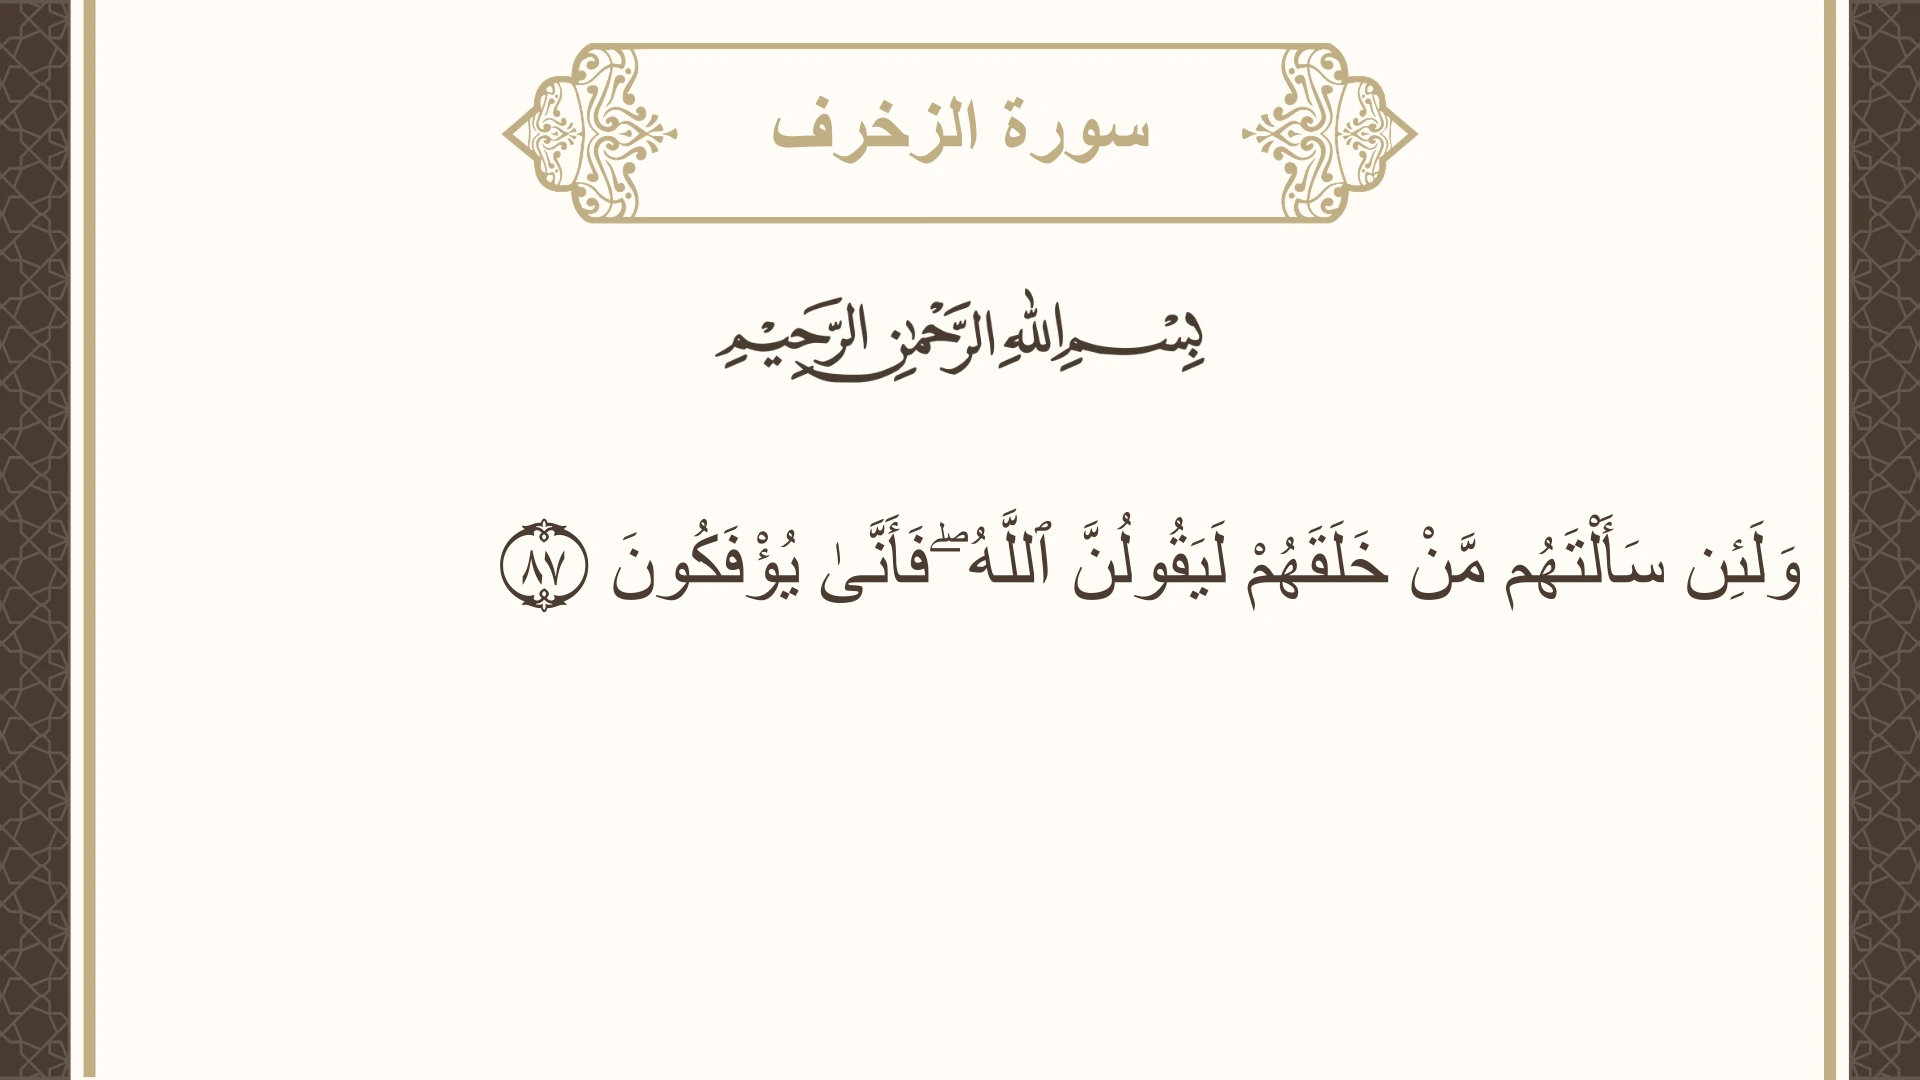 سورة الزخرف
بِسْمِ اللهِ الرَّحْمٰنِ الرَّحِيْمِ
وَلَئِن سَأَلْتَهُم مَّنْ خَلَقَهُمْ لَيَقُولُنَّ ٱللَّهُ ۖ فَأَنَّىٰ يُؤْفَكُونَ ٨٧